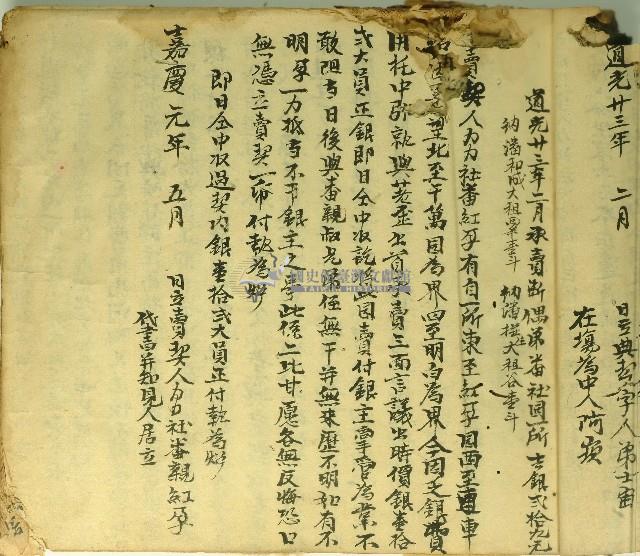 道光廿三年 二月 日立典契字人弟士宙
在塲為中人阿蘋
道光廿三年二月承賣斷偶弟番社园一所去銀弍拾九元
納潘和成大租粟壹斗 納潘楼大租谷壹斗
賣契人力力社番紅孕有自一所東至紅孕园西至車
至北至干萬园為界四至明白為界今因乏銀費
用托中弥就與老 出首與賣三面言議出時價銀壹拾
弍大員正銀即日仝中收訖其园賣付銀主掌管為業不
敢阻当日後與番親叔兄弟侄無干并無来歷不明如有不
明孕一力抵当不干銀主之事此係二比甘愿各無反悔恐口
無憑立賣契一帋付執為炤
即日仝中收過契内銀壹拾弍大員正付執為炤
嘉慶元年 五月 日立賣契人力力社番親紅孕
代書并知見人居立
國史館臺灣文獻館
TAIWAN HISTORICA